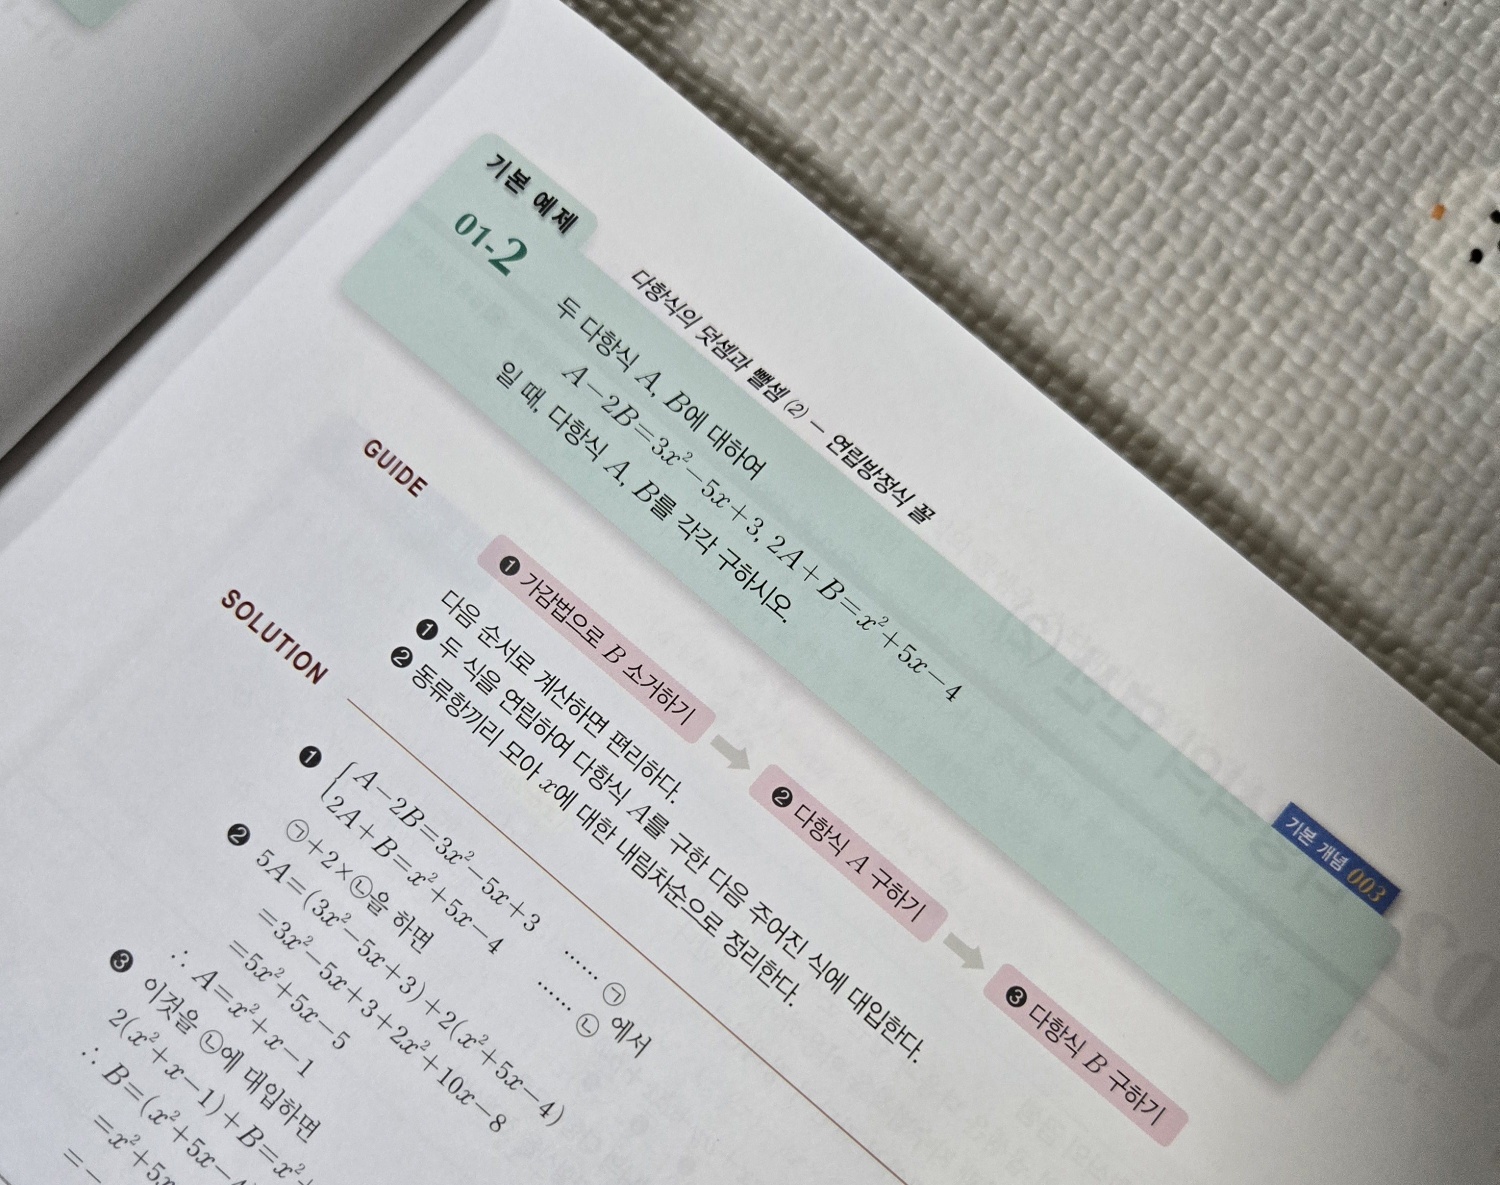 기본 예제
01-2
다항식의 덧셈과 뺄셈 (2) - 연립방정식 꼴
두 다항식 A, B에 대하여
A-2B=3x²-5x+3, 2A+B=x²+5x-4
일 때, 다항식 A, B를 각각 구하시오.
기본 개념 003
GUIDE
❶ 가감법으로 B 소거하기
❷ 다항식 A 구하기
❸ 다항식 B 구하기
다음 순서로 계산하면 편리하다.
❶ 두 식을 연립하여 다항식 A를 구한 다음 주어진 식에 대입한다.
❷ 동류항끼리 모아 x에 대한 내림차순으로 정리한다.
SOLUTION
❶ A-2B=3x²-5x+3 …… ㉠
2A+B=x²+5x-4 …… ㉡ 에서
㉠+2×㉡을 하면
❷ 5A=(3x²-5x+3)+2(x²+5x-4)
=3x²-5x+3+2x²+10x-8
=5x²+5x-5
∴ A=x²+x-1
❸ 이것을 ㉡에 대입하면
2(x²+x-1)+B=x²+
∴ B=(x²+5x-4)
=x²+5x
=-